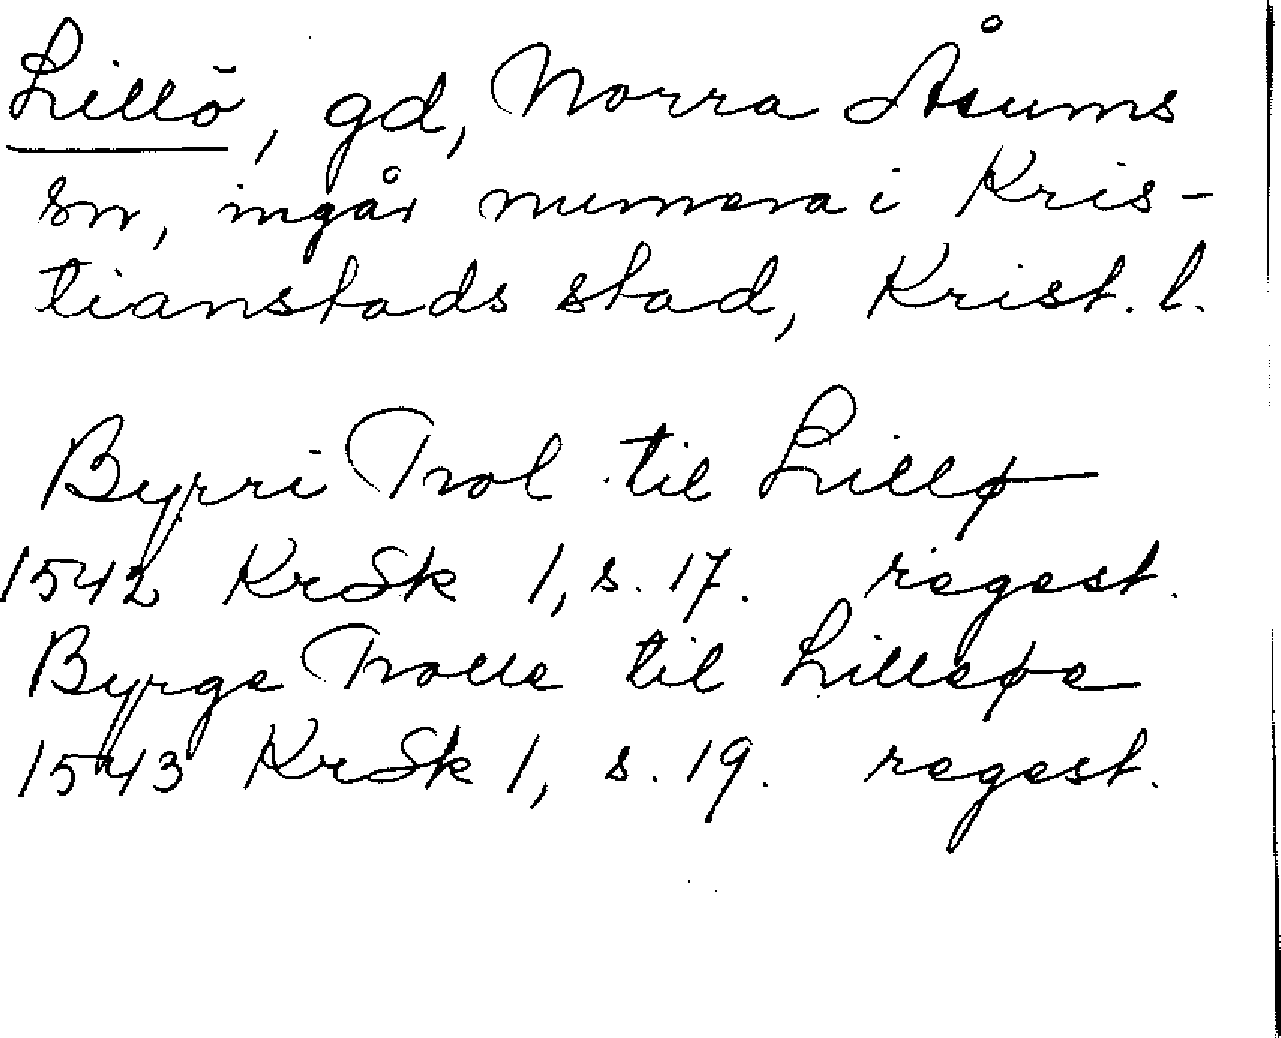 Lillö, gd, Norra Åsums
sn, ingår numera i Kris-
tianstads stad, Krist. l.
Byrri Trol til Lillø
1542 KrSk 1, s. 17. regest.
Byrge Trolle til Lilleøe
1543 KrSk 1, s. 19. regest.